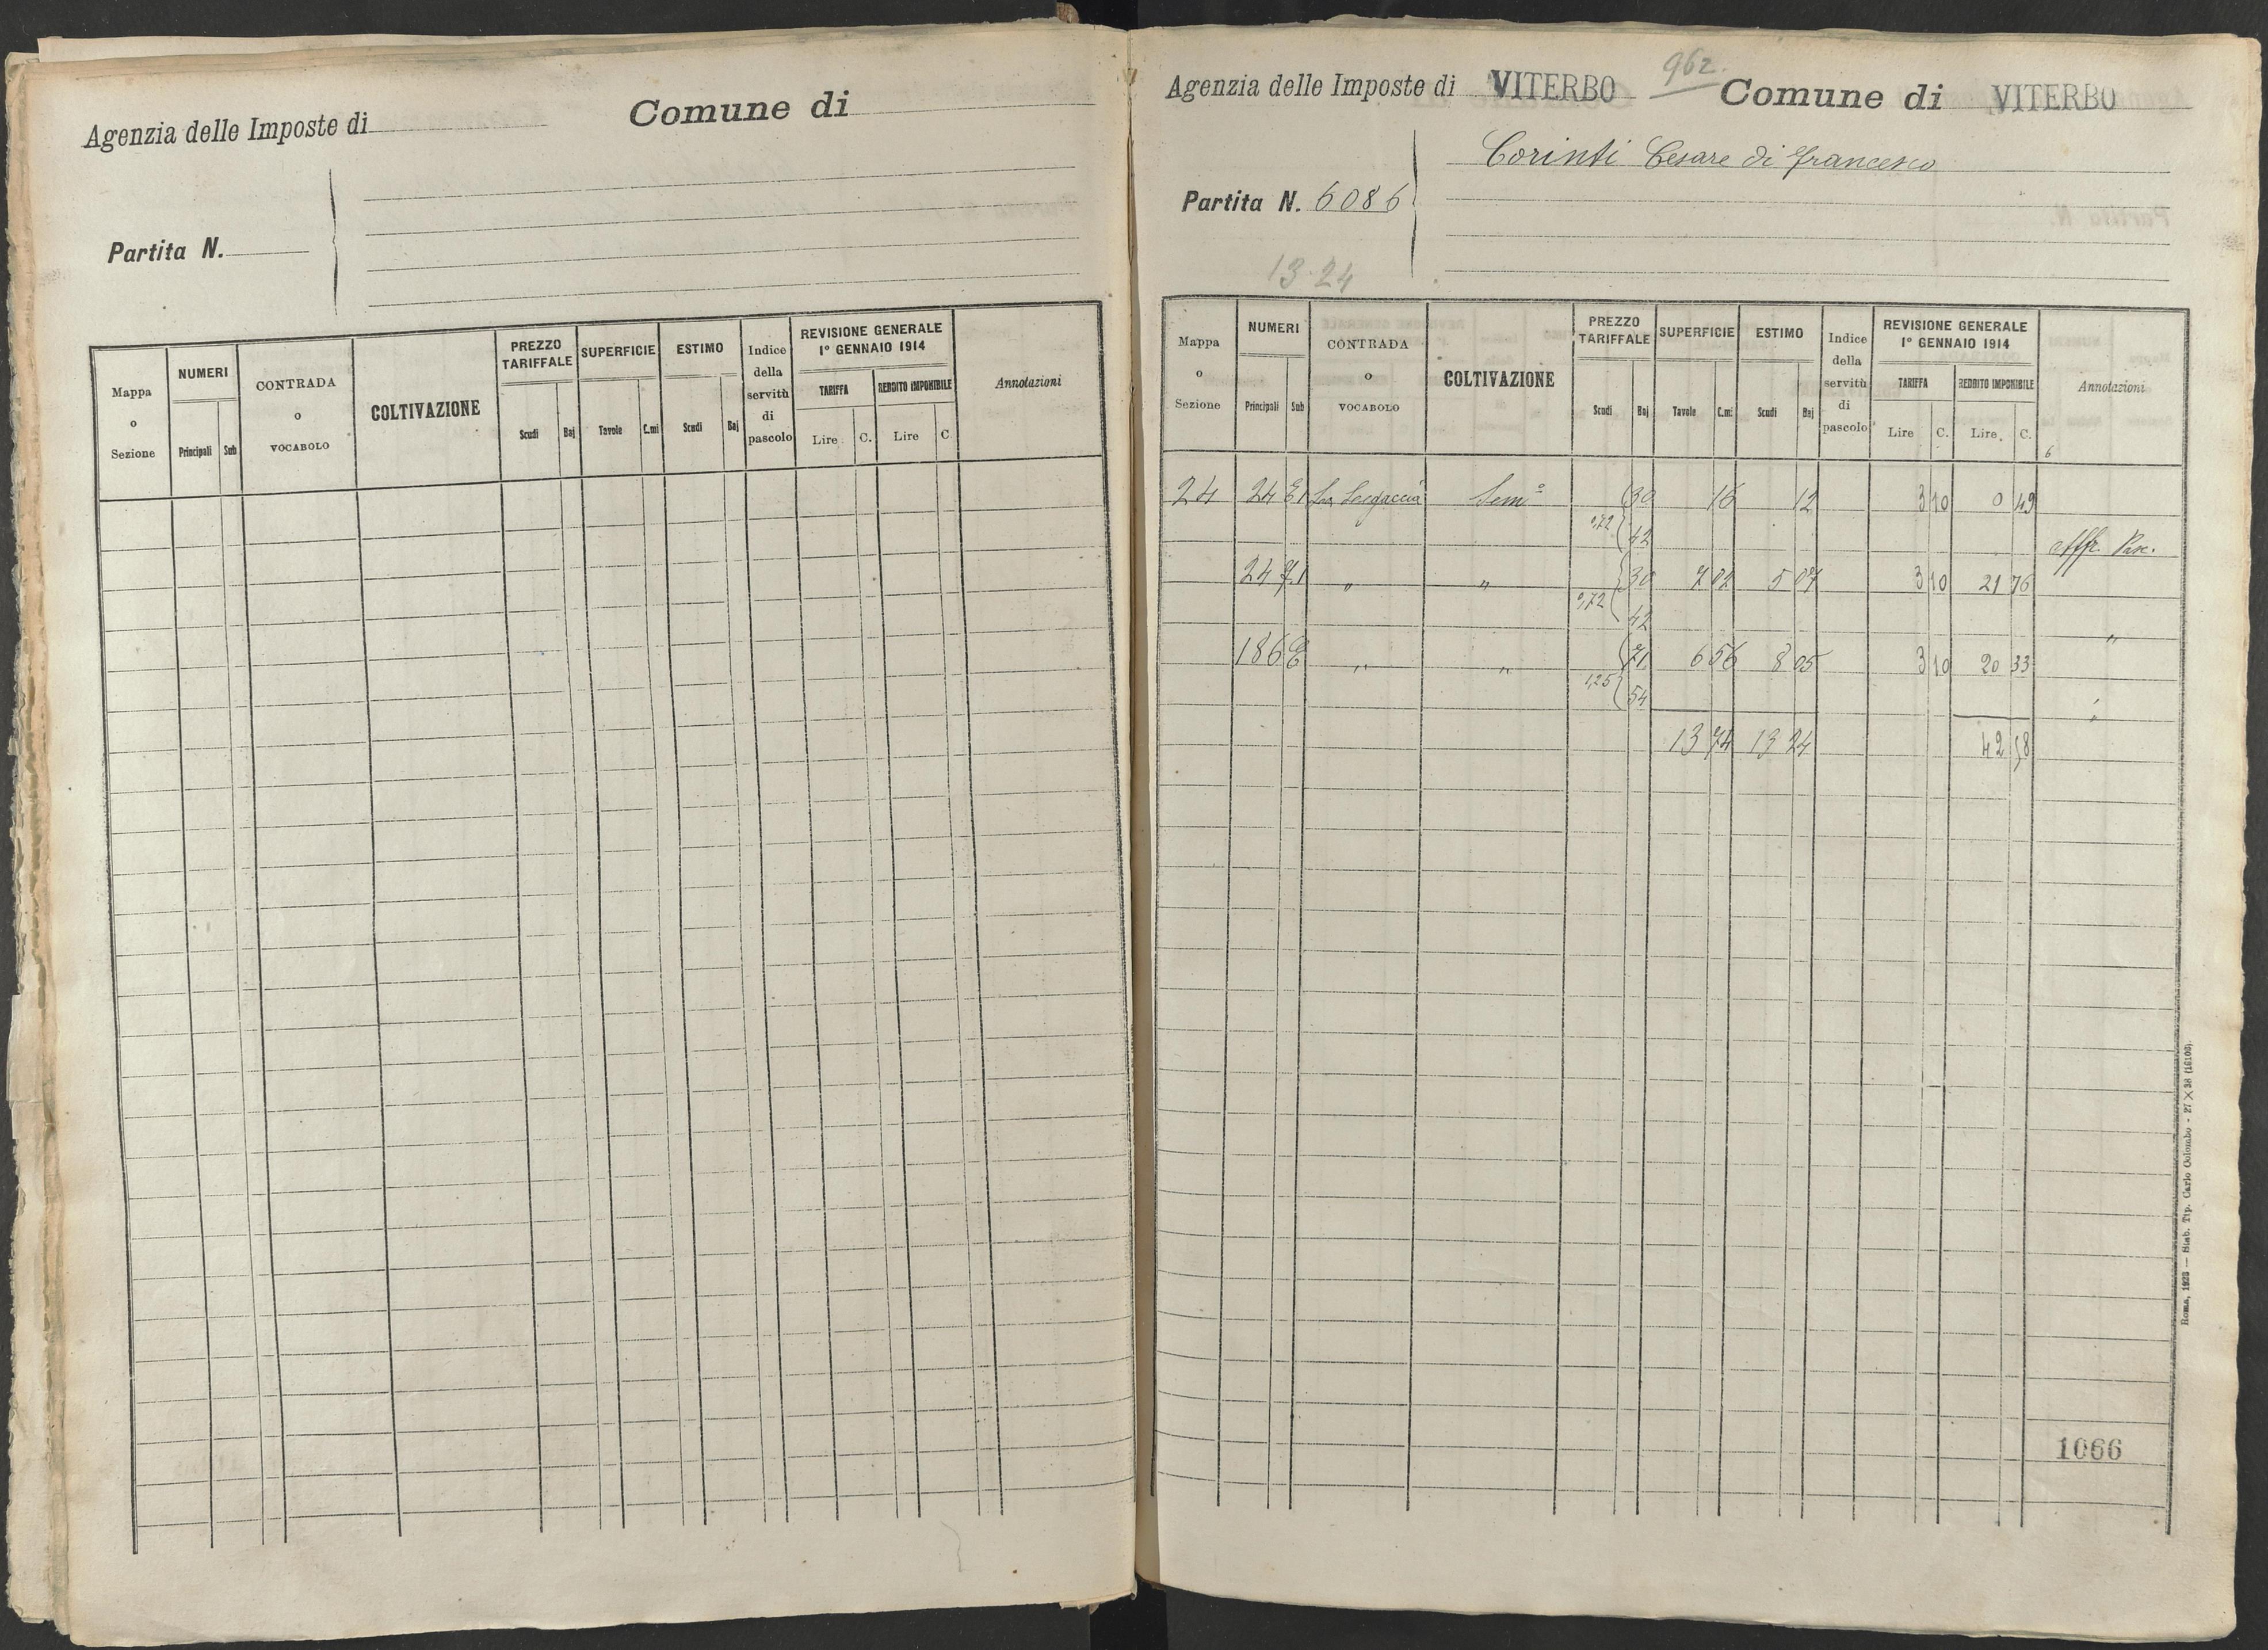 Agenzia delle Imposte di
Comune di
Partita N.
Mappa o Sezione
NUMERI
Principali Sub
CONTRADA o VOCABOLO
COLTIVAZIONE
PREZZO TARIFFALE
Scudi Baj
SUPERFICIE
Tavole C.mi
ESTIMO
Scudi Baj
Indice della servitù di pascolo
REVISIONE GENERALE
1° GENNAIO 1914
TARIFFA
Lire C.
REDDITO IMPONIBILE
Lire C.
Annotazioni
962.
Agenzia delle Imposte di VITERBO Comune di VITERBO
Corinti Cesare di Francesco
Partita N. 6086
13.24
Mappa o Sezione
NUMERI
Principali Sub
CONTRADA o VOCABOLO
COLTIVAZIONE
PREZZO TARIFFALE
Scudi Baj
SUPERFICIE
Tavole C.mi
ESTIMO
Scudi Baj
Indice della servitù di pascolo
REVISIONE GENERALE
1° GENNAIO 1914
TARIFFA
Lire C.
REDDITO IMPONIBILE
Lire C.
Annotazioni
6
24 24 E1 La Sem° 30 16 12 3 10 0 49
0,72 42 Affr. Pasc.
24 " " 30 7 02 5 07 3 10 21 76
0,72 42 "
186 E " " 71 6 56 8 05 3 10 20 33
1,25 54 "
13 74 13 24 42 58
1066
Roma, 1923 — Stab. Tip. Carlo Colombo - 27 × 38 (16106).